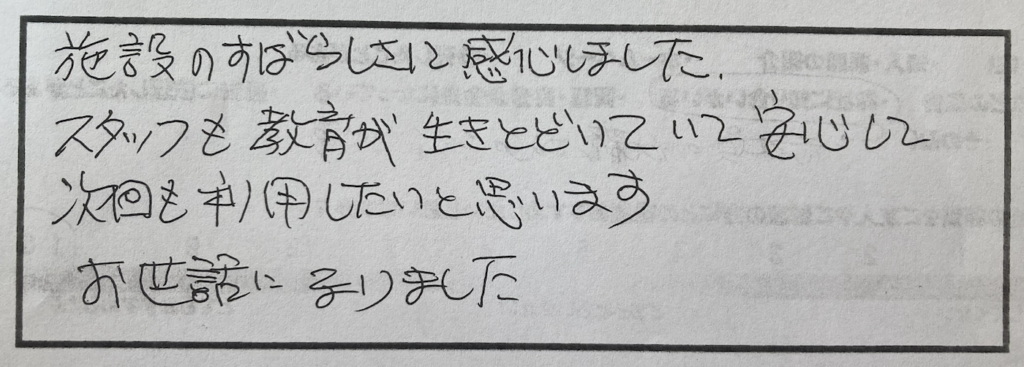 施設のすばらしさに感心しました.
スタッフも教育が生きとどいていて安心して
次回も利用したいと思います
お世話になりました